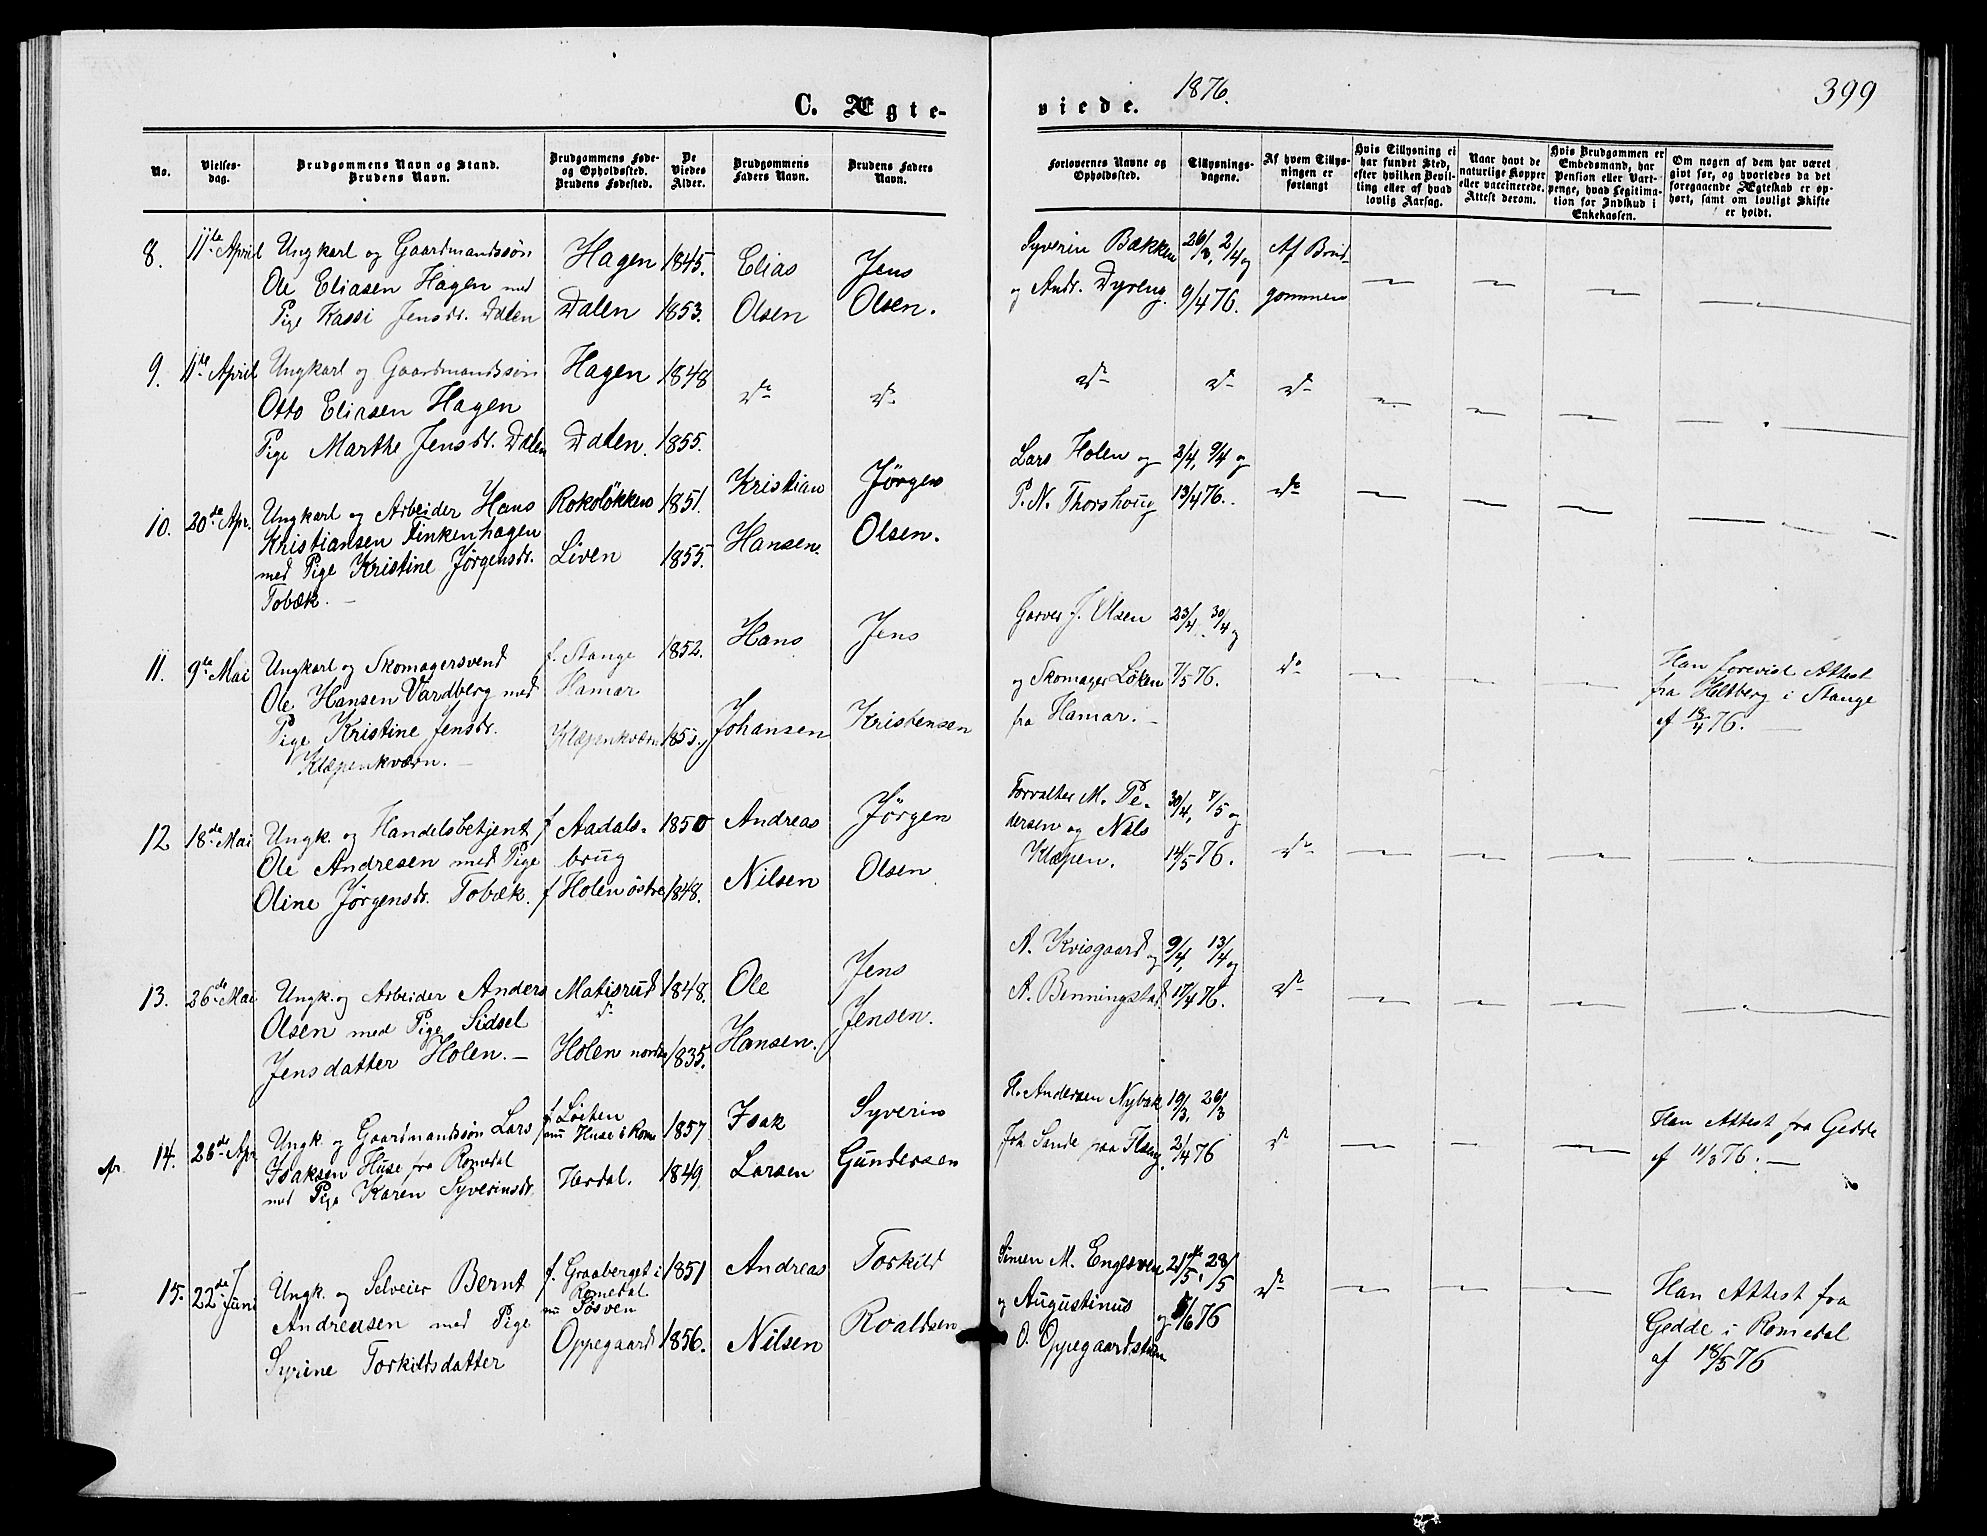 C. Ægte-
No.
Vielses-
dag.
Brudgommens Navn og Stand.
Brudens Navn.
Brudgommens Føde-
og Opholdssted.
Brudens Fødested.
De
Viedes
Alder.
Brudgommens
Faders Navn.
Brudens Faders
Navn.
8.
11te April
Ungkarl og Gaardmandssøn
Ole Eliasen Hagen med
Pige Kassi Jensdr. Dalen
Hagen
Dalen
1845.
1853.
Elias
Olsen
Jens
Olsen.
9.
11te April
Ungkarl og Gaardmandssøn
Otto Eliasen Hagen
Pige Marthe Jensdr. Dalen
Hagen
Dalen.
1848
1855.
do
do
10.
20de Apr.
Ungkarl og Arbeider Hans
Kristiansen Finkenhagen
med Pige Kristine Jørgensdr.
Tobæk. —
Rokoløkken
Liven
1851.
1855.
Kristian
Hansen.
Jørgen
Olsen.
11.
9de Mai
Ungkarl og Skomagersvend
Ole Hansen Vardberg med
Pige Kristine Jensdr.
Klæpenkværn. —
f. Stange
Hamar
Klæpenkværn
1852.
1853.
Hans
Johansen
Jens
Kristensen
12
18de Mai
Ungk. og Handelsbetjent
Ole Andresen med Pige
Oline Jørgensdr. Tobæk.
f Aadals-
brug
f Holen østre
1850
1848.
Andreas
Nilsen
Jørgen
Olsen
13.
26de Mai
Ungk. og Arbeider Anders
Olsen med Pige Sidsel
Jensdatter Holen. —
Matisrud
do
Holen nordre
1848.
1835.
Ole
Hansen.
Jens
Jensen.
Ap.
14.
26de Apr
Ungk. og Gaardmandssøn Lars
Isaksen Huse fra Romedal
med Pige Karen Syverinsdr.
f Løiten
nu Huse i Rom.
Herdal.
1857
1849.
Isak
Larsen
Syverin
Gundersen
15.
22de Juni
Ungk. og Selveier Bernt
Andreasen med Pige
Syrine Torkildsdatter
f. Graaberget i
Romedal
nu Tosven
Oppegaard
1851
1856.
Andreas
Nilsen
Torkild
Roaldsen
viede.
1876.
399
Forlovernes Navne og
Opholdssted.
Tillysnings-
dagene.
Af hvem Tillys-
ningen er
forlangt
Hvis Tillysning ei
har fundet Sted,
efter hvilken Bevil-
ling eller af hvad
lovlig Aarsag.
Naar havt de
naturlige Kopper
eller vaccinerede.
Attest derom.
Hvis Brudgommen er
Embedsmand, har
Pension eller Vart-
penge, hvad Legitima-
tion for Indskud i
Enkekassen.
Om nogen af dem har været
givt før, og hvorledes da det
foregaaende Ægteskab er op-
hørt, samt om lovligt Skifte
er holdt.
Syverin Bækken
og Andr. Dyreng.
26/3, 2/4 og
9/4 76.
Af Brud-
gommen
do
do
do
Lars Holen og
P. N. Thorshoug
2/4, 9/4 og
13/4 76.
do
Garver J. Olsen
og Skomager Løken
fra Hamar. —
23/4, 30/4 og
7/5 76.
do
Han forevist Attest
fra Heltberg i Stange
af 18/4 76. —
Forvalter M. Pe-
dersen og Nils
Klæpen.
30/4, 7/5 og
14/5 76.
do
A. Kvisgaard og
A. Benningstad
9/4, 13/4 og
17/4 76.
do
H. Andersen Nybak
Joh Sande paa Ilseng
19/3, 26/3
2/4 76
do
Han Attest fra Gedde
af 11/3 76. —
Simen M. Engesven
og Augustinus
O. Oppegaardstuen
21/5, 28/5
og 5/6 76
do
Han Attest fra
Gedde i Romedal
af 18/5 76